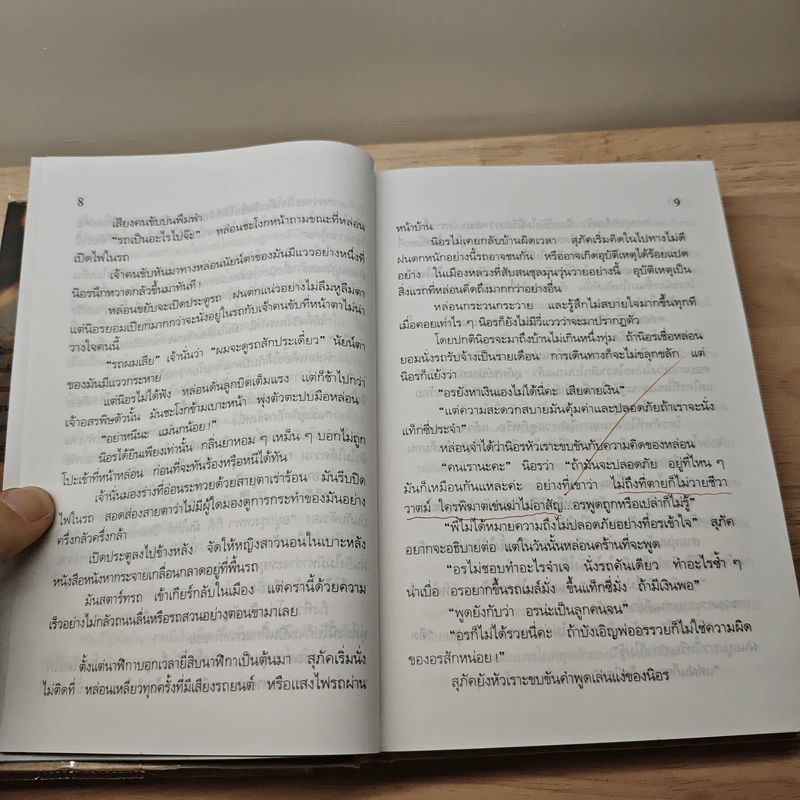 8
เสียงคนขับบ่นพึมพำ
“รถเป็นอะไรไปจ๊ะ” หล่อนชะโงกหน้าถามขณะที่หล่อน
เปิดไฟในรถ
เจ้าคนขับหันมาทางหล่อนนัยน์ตาของมันมีแววอย่างหนึ่งที่
นิอรนึกหวาดกลัวขึ้นมาทันที!
หล่อนขยับจะเปิดประตูรถ ฝนตกแน่วอย่างไม่ลืมหูลืมตา
แต่นิอรยอมเปียกมากกว่าจะนั่งอยู่ในรถกับเจ้าคนขับที่หน้าตาไม่น่า
วางใจคนนี้
“รถผมเสีย” เจ้านั่นว่า “ผมจะดูรถสักประเดี๋ยว” นัยน์ตา
ของมันมีแววกระหาย
แต่นิอรไม่ได้ฟัง หล่อนดันลูกบิดเต็มแรง แต่ก็ช้าไปกว่า
เจ้าอสรพิษตัวนั้น มันชะโงกข้ามเบาะหน้า พุ่งตัวตะปบมือหล่อน
“อย่าหนีนะ แม่นกน้อย!”
นิอรได้ยินเพียงเท่านั้น กลิ่นยาหอม ๆ เหม็น ๆ บอกไม่ถูก
โปะเข้าที่หน้าหล่อน ก่อนที่จะทันร้องหรือหนีได้ทัน
เจ้านั่นมองร่างที่อ่อนระทวยด้วยสายตาเร่าร้อน มันรีบปิด
ไฟในรถ สอดส่องสายตาว่าไม่มีผู้ใดมองดูการกระทำของมันอย่าง
ครึ่งกลัวครึ่งกล้า
เปิดประตูลงไปข้างหลัง จัดให้หญิงสาวนอนในเบาะหลัง
หนังสือหนังหากระจายเกลื่อนกลาดอยู่ที่พื้นรถ
มันสตาร์ทรถ เข้าเกียร์กลับในเมือง แต่ครานี้ด้วยความ
เร็วอย่างไม่กลัวถนนลื่นหรือรถสวนอย่างตอนขามาเลย
ตั้งแต่นาฬิกาบอกเวลายี่สิบนาฬิกาเป็นต้นมา สุภัคเริ่มนั่ง
ไม่ติดที่ หล่อนเหลียวทุกครั้งที่มีเสียงรถยนต์ หรือแสงไฟรถผ่าน
9
หน้าบ้าน
นิอรไม่เคยกลับบ้านผิดเวลา สุภัคเริ่มคิดในไปทางไม่ดี
ฝนตกหนักอย่างนี้รถอาจชนกัน หรืออาจเกิดอุบัติเหตุได้ร้อยแปด
อย่าง ในเมืองหลวงที่สับสนชุลมุนวุ่นวายอย่างนี้ อุบัติเหตุเป็น
สิ่งแรกที่หล่อนคิดถึงมากกว่าอย่างอื่น
หล่อนกระวนกระวาย และรู้สึกไม่สบายใจมากขึ้นทุกที
เมื่อคอยเท่าไร ๆ นิอรก็ยังไม่มีวี่แววว่าจะมาปรากฏตัว
โดยปกตินิอรจะมาถึงบ้านไม่เกินหนึ่งทุ่ม ถ้านิอรเชื่อหล่อน
ยอมนั่งรถรับจ้างเป็นรายเดือน การเดินทางก็จะไม่ขลุกขลัก แต่
นิอรก็แย้งว่า
“อรยังหาเงินเองไม่ได้นี่คะ เสียดายเงิน”
“แต่ความสะดวกสบายมันคุ้มค่าและปลอดภัยถ้าเราจะนั่ง
แท็กซี่ประจำ”
หล่อนจำได้ว่านิอรหัวเราะขบขันกับความคิดของหล่อน
“คนเรานะคะ” นิอรว่า “ถ้ามันจะปลอดภัย อยู่ที่ไหน ๆ
มันก็เหมือนกันแหละค่ะ อย่างที่เขาว่า ไม่ถึงที่ตายก็ไม่วายชีวา
วาตม์ ใครพิฆาตเข่นฆ่าไม่อาสัญ...อรพูดถูกหรือเปล่าก็ไม่รู้”
“พี่ไม่ได้หมายความถึงไม่ปลอดภัยอย่างที่อรเข้าใจ” สุภัค
อยากจะอธิบายต่อ แต่ในวันนั้นหล่อนคร้านที่จะพูด
“อรไม่ชอบทำอะไรจำเจ นั่งรถคันเดียว ทำอะไรซ้ำ ๆ
น่าเบื่อ อรอยากขึ้นรถเมล์มั่ง ขึ้นแท็กซี่มั่ง ถ้ามีเงินพอ”
“พูดยังกับว่า อรน่ะเป็นลูกคนจน”
“อรก็ไม่ได้รวยนี่คะ ถ้าบังเอิญพ่ออรรวยก็ไม่ใช่ความผิด
ของอรสักหน่อย!”
สุภัคยังหัวเราะขบขันคำพูดเล่นแง่ของนิอร